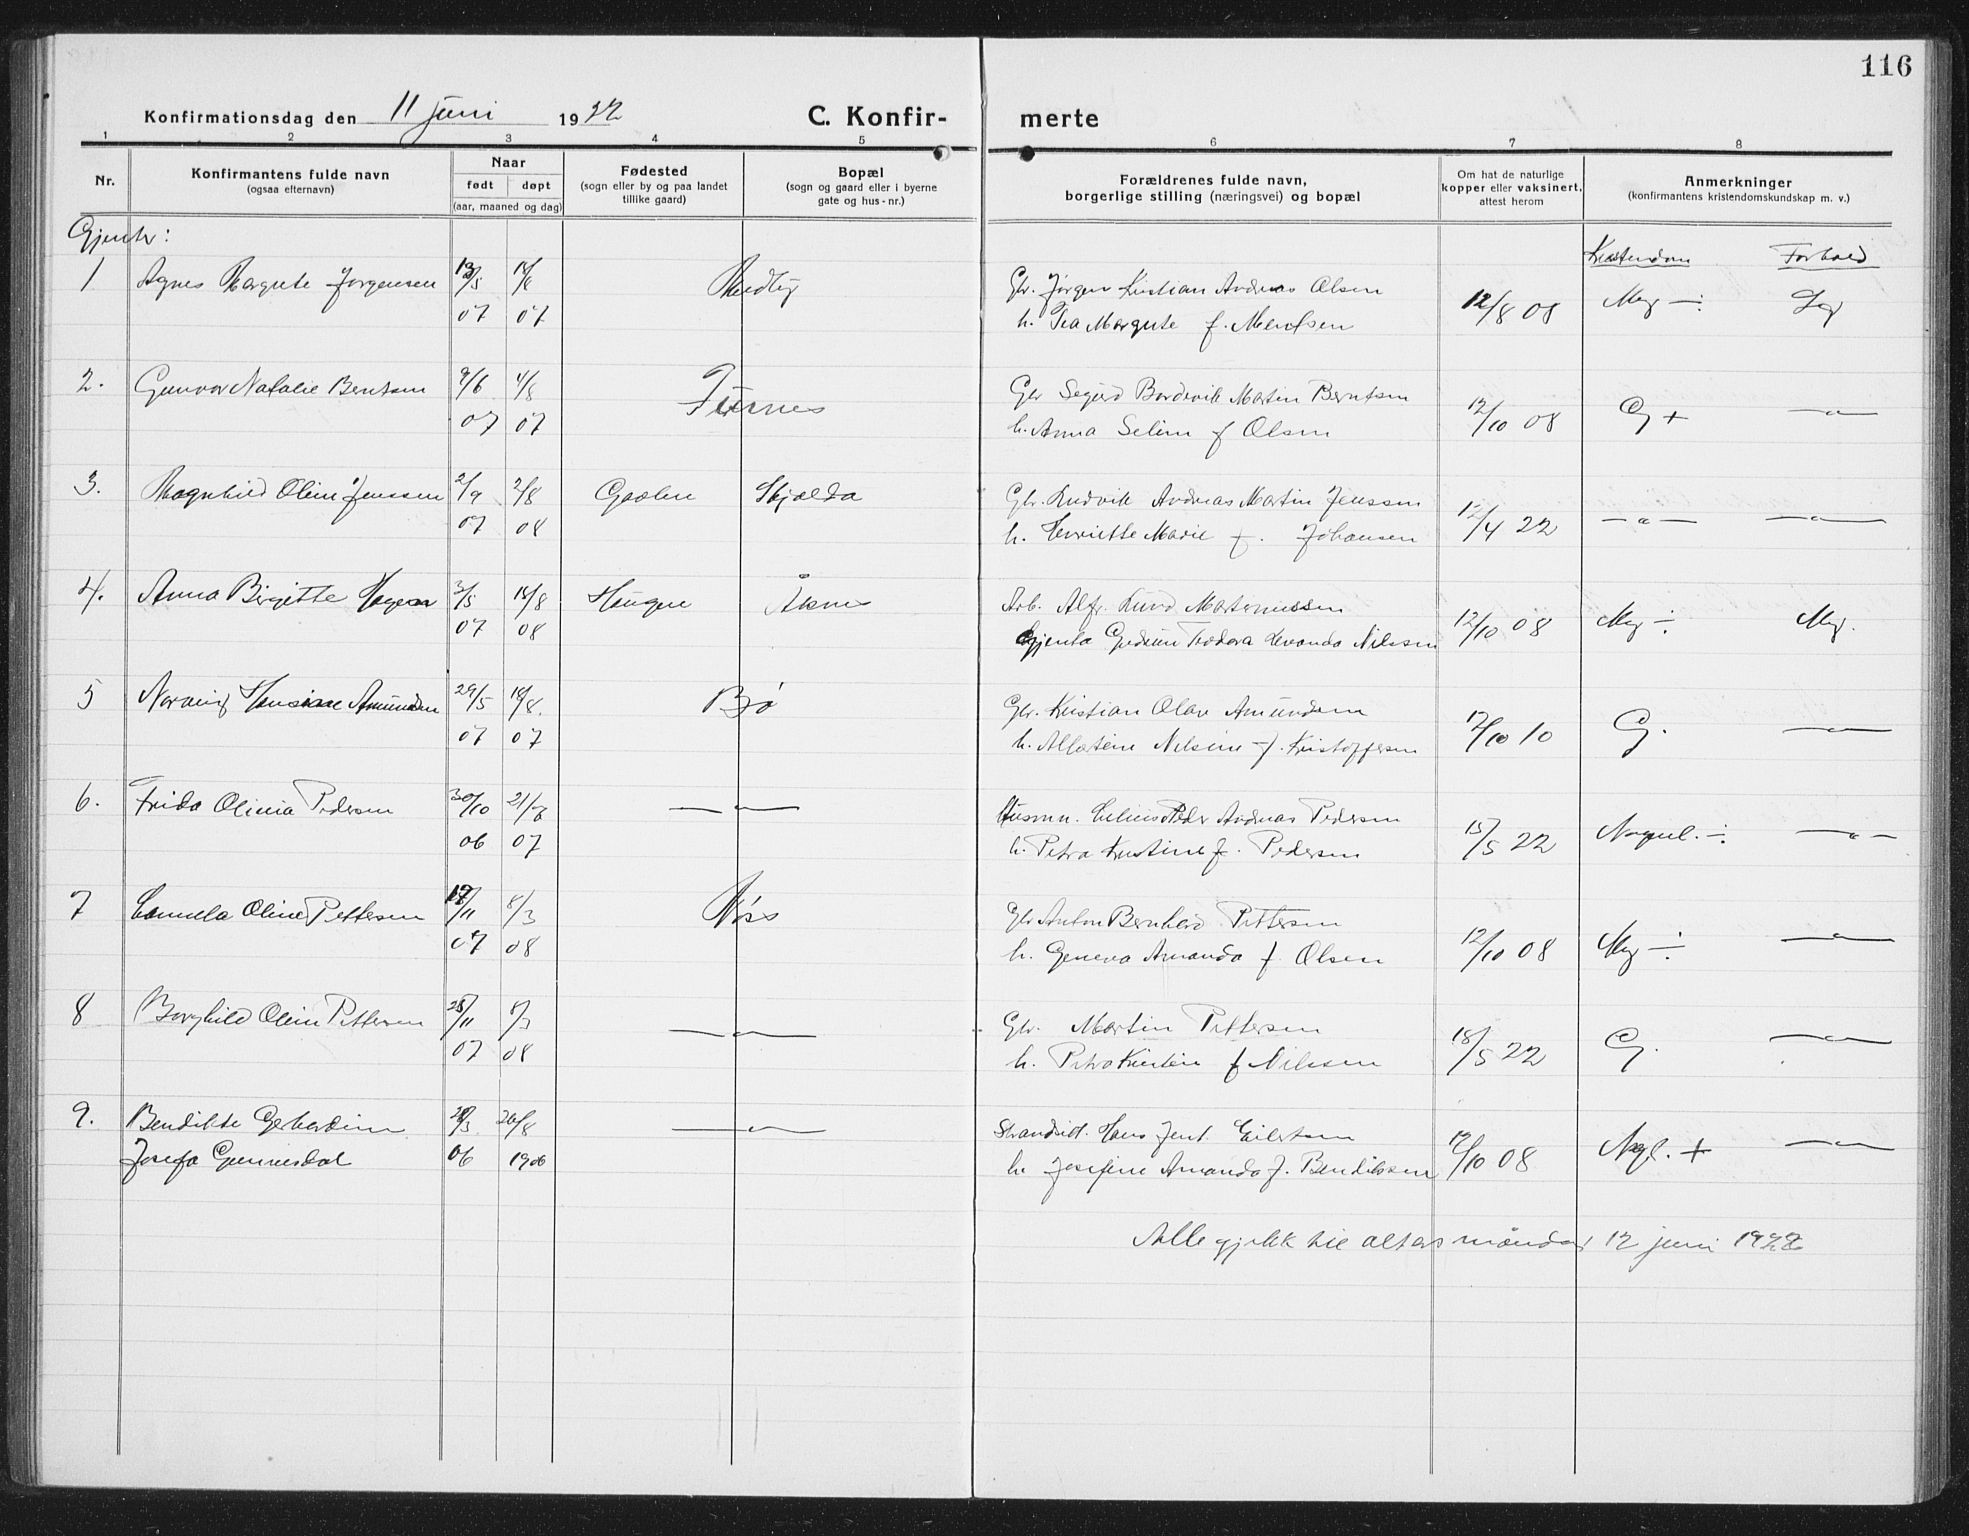 116
Konfirmationsdag den 11 juni 1922 C. Konfir- merte
1 2 3 4 5 6 7 8
Nr. Konfirmantens fulde navn (ogsaa efternavn) Naar født døpt (aar, maaned og dag) Fødested (sogn eller by og paa landet tillike gaard) Bopæl (sogn og gaard eller i byerne gate og hus-nr.) Forældrenes fulde navn, borgerlige stilling (næringsvei) og bopæl Om hat de naturlige kopper eller vaksinert, attest herom Anmerkninger (konfirmantens kristendomskundskap m. v.)
Gjenter: Kristendom Forhold
1 Agnes Margrete Jørgensen Gbr. Jørgen Kristian Andreas Olsen 12/8 08 Mg ÷
07 07 h. Tea Margrete f. Bentsen
2. Gunvor Natalie Berntsen 9/6 4/8 Gbr Sigurd Martin Berntsen 12/10 08 G + —〃—
07 07 h. Anna Seline f Olsen
3. Ragnhild Oline Jenssen 2/9 2/8 Skjelda Gbr. Ludvik Andreas Martin Jenssen 12/4 22 —〃— —〃—
07 08 h. Henriette Marie f. Johansen
4. Anna Birgitte Hagen 3/5 15/8 Haugen Åknes Arb. Alfr. Lund Martinussen 12/10 08 Mg ÷ Mg.
07 08 Gjenta Gudrun Teodora Nilssen
5 Hansine Amundsen 29/5 18/8. Bø Gbr. Kristian Olav Amundsen 12/10 10 G. —〃—
07 07 h. Nilsine f. Kristoffersen
6. Frida Olinia Pedersen 30/10 —〃— Husmn. Peder Andreas Pedersen 15/5 22 ÷ —〃—
06 07 h. Petra Kristine f. Pedersen
7 Oline Pettersen 17/11 8/3 Nøss Gbr Anton Bernhard Pettersen 12/10 08 Mg ÷ —〃—
07 08 h. Geneva Amanda f. Olsen
8 Borghild Oline Pettersen 28/11 —〃— Gbr. Martin Pettersen 18/5 22 G. —〃—
07 08 h. Petra Kristine f Nilssen
9. Bendikte Gerhardine 26/8 —〃— Strandsitt. Hans Jent. Eilertsen 12/10 08 Ngl. + —〃—
Josefa 06 1906 h. Josefine Amanda f. Bendikssen
Alle gjekk til alters måndag 12 juni 1922